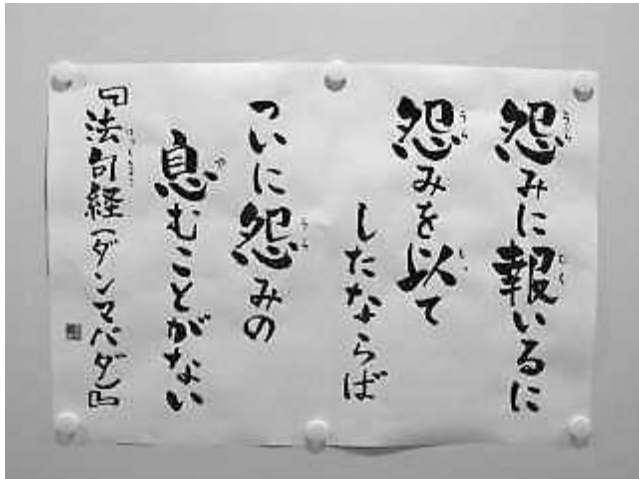 怨みに報いるに
怨みを以て
したならば
ついに怨みの
息むことがない
『法句経(ダンマパダ)』